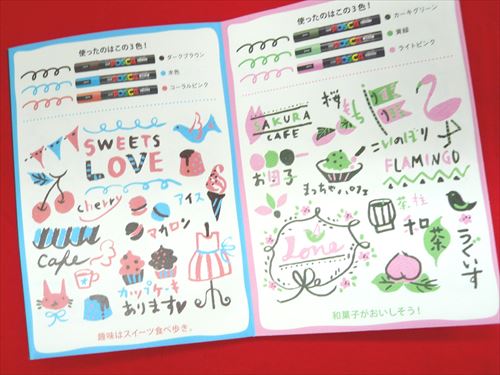 使ったのはこの3色!
POSCA ダークブラウン
POSCA 水色
POSCA コーラルピンク
SWEETS
LOVE
cherry
アイス
マカロン
Cafe
カップケーキ
あります♥
趣味はスイーツ食べ歩き。
使ったのはこの3色!
POSCA カーキグリーン
POSCA 黄緑
POSCA ライトピンク
SAKURA
CAFE
桜もち
こいのぼり
FLAMINGO
お団子
まっちゃパフェ
茶柱
和
茶
うぐいす
Love
和菓子がおいしそう!